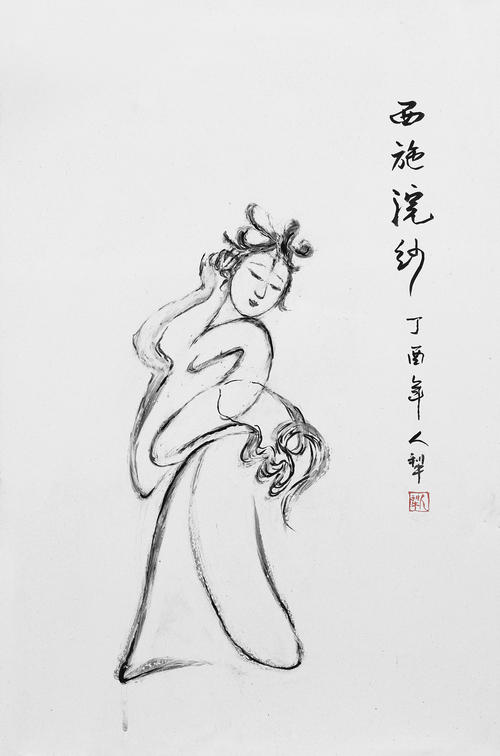 西施浣纱
丁酉年人犁